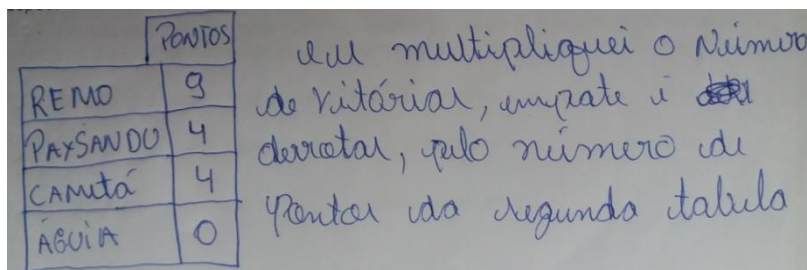 PONTOS
REMO 9
PAYSANDO 4
CAMETÁ 4
ÁGUIA 0
eu multipliquei o Número
de vitórias, empate i
derrotas, pelo número de
Pontos da segunda tabela